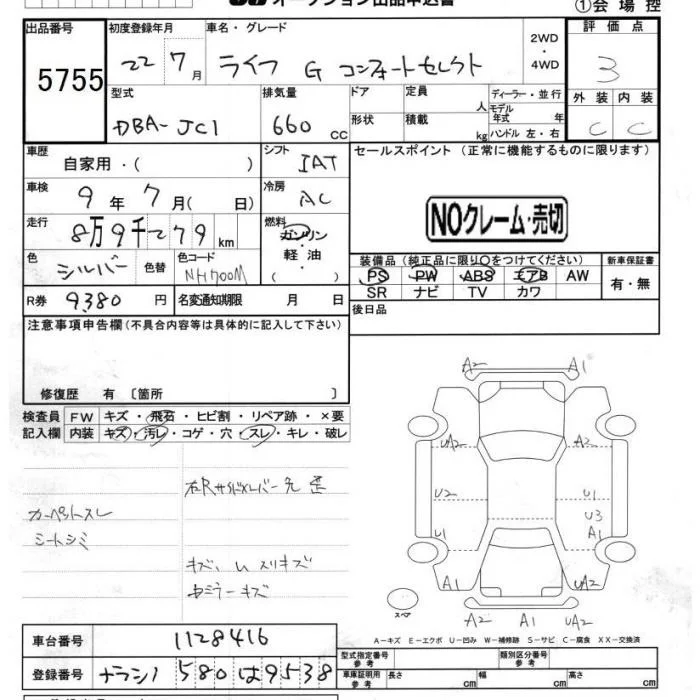 オークション出品申込書
①会場控
出品番号 5755
初度登録年月 22 7月
車名・グレード ライフ G コンフォートセレクト
2WD・4WD
評価点 3
外装 内装
C C
型式 DBA-JC1
排気量 660 cc
ドア 形状
定員 人
積載 kg
ディーラー・並行
モデル年式 年
ハンドル 左・右
車歴 自家用・( )
シフト IAT
セールスポイント (正常に機能するものに限ります)
NOクレーム・売切
車検 9年 7月( 日)
冷房 AC
走行 8万9千279 km
燃料 ガソリン 軽油 ( )
色 シルバー 色替
色コード NH700M
R券 9,380 円
名変通知期限 月 日
装備品 (純正品に限り○をつけてください)
PS PW ABS エアB AW
SR ナビ TV カワ
新車保証書
有・無
後日品
注意事項申告欄 (不具合内容等は具体的に記入して下さい)
修復歴 有 〔箇所 〕
検査員記入欄
FW キズ・飛石・ヒビ割・リペア跡・×要
内装 キズ・汚レ・コゲ・穴・スレ・キレ・破レ
右Rサイドメンバー先 歪
カーペットスレ
シートシミ
キズ、U スリキズ
ミラーキズ
A2 A1
UA2 A2
U2 U1
U3
U1
A1 UA2
A2 A1 UA2
スペア
A-キズ E-エクボ U-凹み W-補修跡 S-サビ C-腐食 XX-交換済
車台番号 1128416
登録番号 ナラシノ 580 は 9538
型式指定番号 参考
類別区分番号 参考
車庫証明用 参考 長さ cm 幅 cm 高さ cm